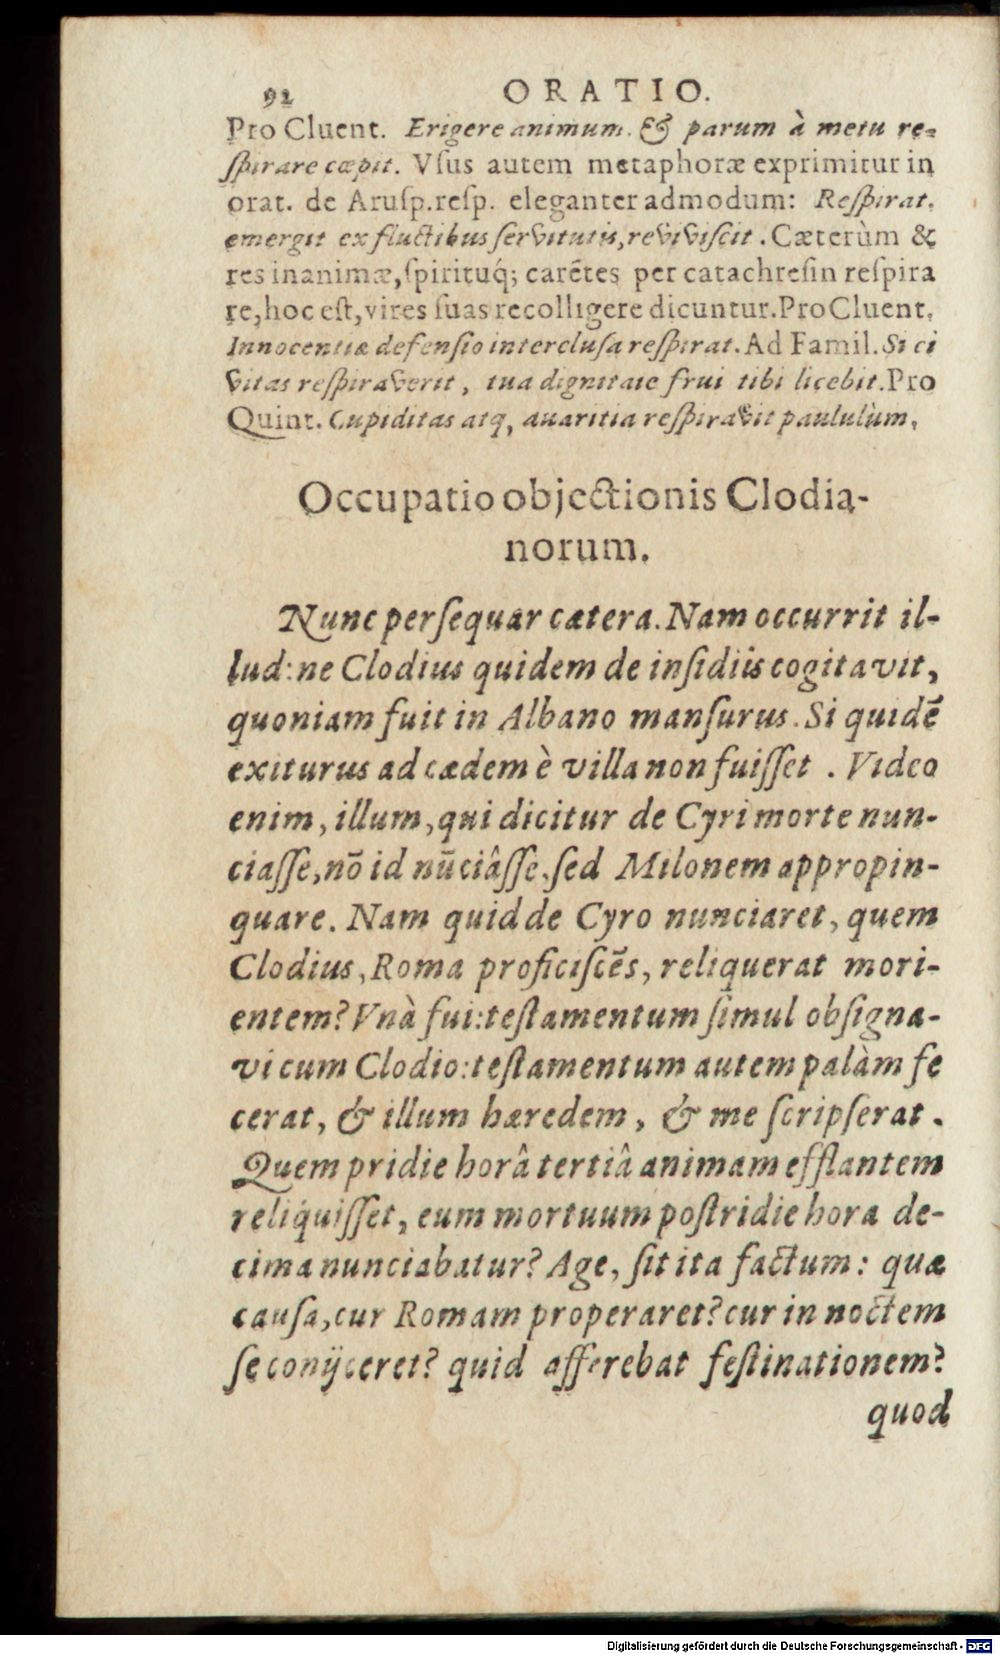 92 ORATIO.
Pro Cluent. Erigere animum. & parum à metu re-
ſpirare cœpit. Vſus autem metaphoræ exprimitur in
orat. de Aruſp.reſp. eleganter admodum: Reſpirat.
emergit ex fluctibus ſervitutis,reviviſcit. Cæterùm &
res inanimæ,ſpirituq́; carẽtes per catachreſin reſpira
re,hoc eſt,vires ſuas recolligere dicuntur.Pro Cluent.
Innocentiæ defenſio intercluſa reſpirat. Ad Famil. Si ci
vitas reſpiraverit, tua dignitate frui tibi licebit. Pro
Quint. Cupiditas atq, avaritia reſpiravit paululùm.
Occupatio objectionis Clodia-
norum.
Nunc perſequar cætera. Nam occurrit il-
lud: ne Clodius quidem de inſidiis cogitavit,
quoniam fuit in Albano manſurus. Si quidē
exiturus ad cædem è villa non fuiſſet . Video
enim, illum, qui dicitur de Cyri morte nun-
ciaſſe, nō id nūciâſſe, ſed Milonem appropin-
quare. Nam quid de Cyro nunciaret, quem
Clodius, Roma proficiſcēs, reliquerat mori-
entem? Vnà fui: teſtamentum ſimul obſigna-
vi cum Clodio: teſtamentum autem palàm fe
cerat, & illum hæredem, & me ſcripſerat.
Quem pridie horâ tertiâ animam efflantem
reliq́uiſſet, eum mortuum poſtridie hora de-
cima nunciabatur? Age, ſit ita factum: quæ
cauſa, cur Romam properaret? cur in noctem
ſe conijceret? quid afferebat feſtinationem?
quod
Digitalisierung gefördert durch die Deutsche Forschungsgemeinschaft - DFG